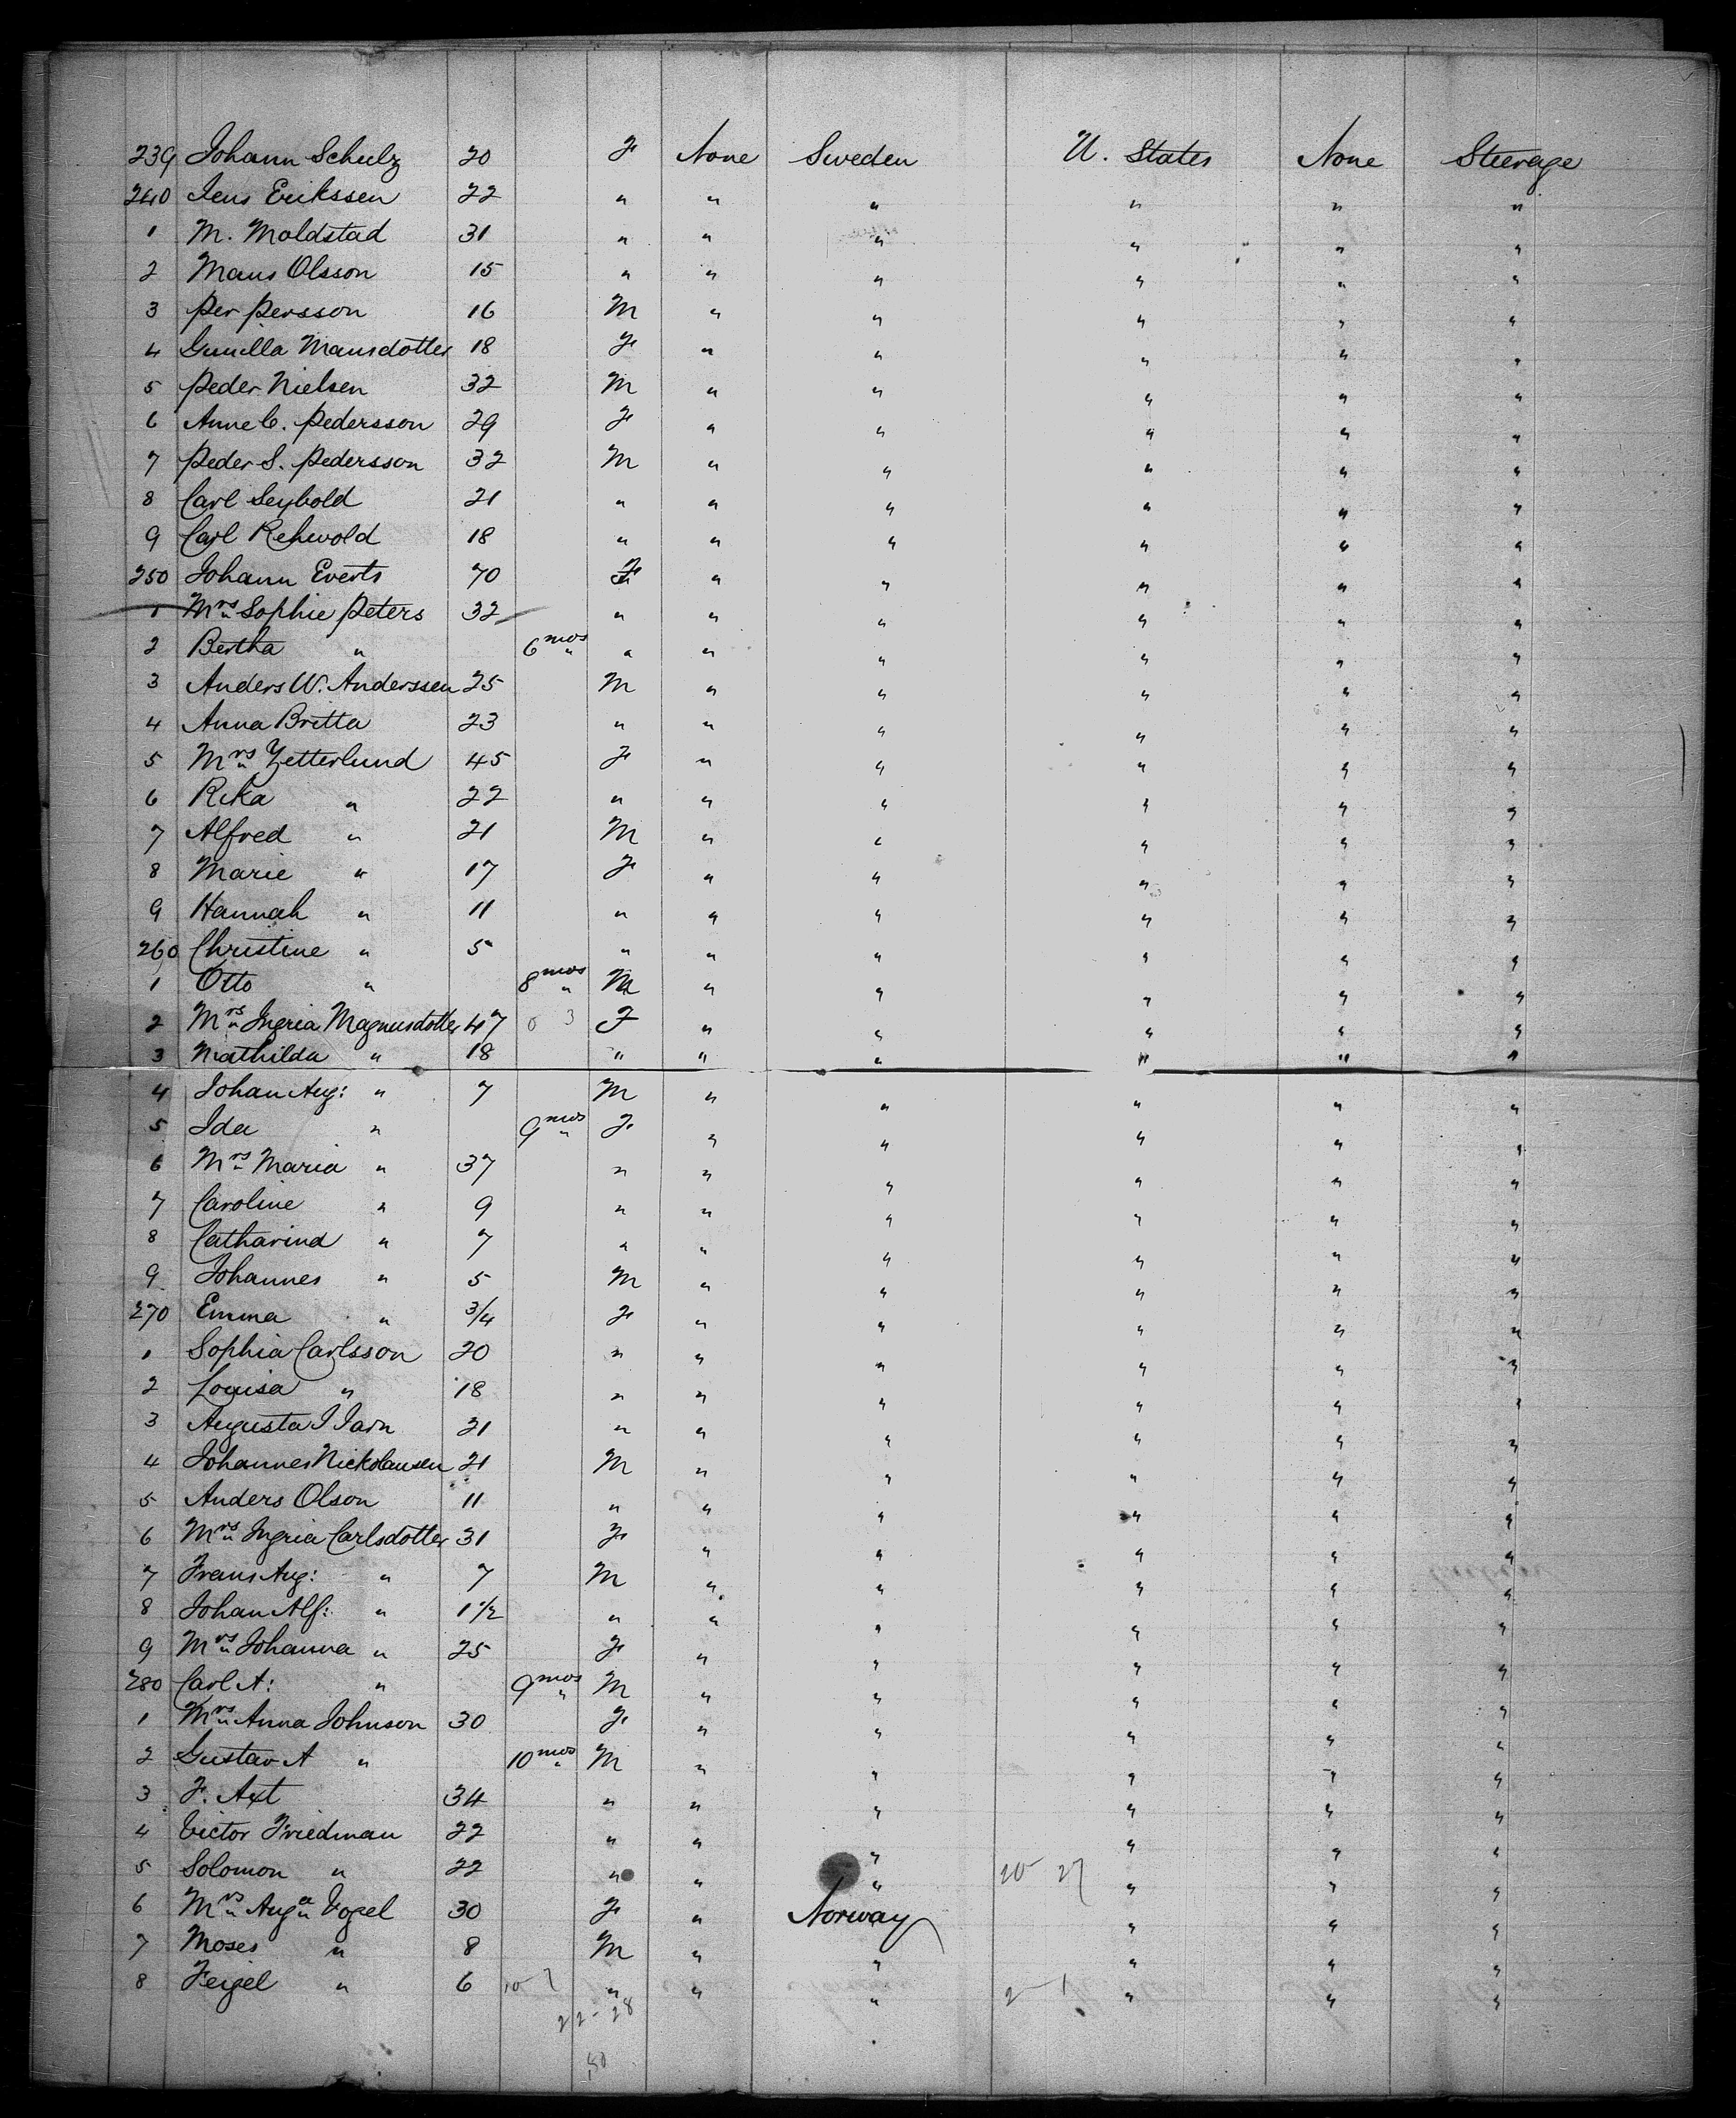 239 Johann Schulz 20 F None Sweden U. States None Steerage
240 Jens Erikssen 22 " " " " " "
1 M. Moldstad 31 " " " " " "
2 Mans Olsson 15 " " " " " "
3 Per Persson 16 M " " " " "
4 Gunilla Mansdotter 18 F " " " " "
5 Peder Nielsen 32 M " " " " "
6 Anne C. Pedersson 29 F " " " " "
7 Peder S. Pedersson 32 M " " " " "
8 Carl Seybold 21 " " " " " "
9 Carl Rehwold 18 " " " " " "
250 Johann Everts 70 F " " " " "
1 Mrs Sophie Peters 32 " " " " " "
2 Bertha " 6 mos " " " " " "
3 Anders W. Anderssen 25 M " " " " "
4 Anna Britta 23 " " " " " "
5 Mrs Zetterlund 45 F " " " " "
6 Rika " 22 " " " " " "
7 Alfred " 21 M " " " " "
8 Marie " 17 F " " " " "
9 Hannah " 11 " " " " " "
260 Christine " 5 " " " " " "
1 Otto " 8 mos M " " " " "
2 Mrs Ingria Magnusdotter 47 F " " " " "
3 Mathilda " 18 " " " " " "
4 Johan Aug: " 7 M " " " " "
5 Ida " 9 mos F " " " " "
6 Mrs Maria " 37 " " " " " "
7 Caroline " 9 " " " " " "
8 Catharind " 7 " " " " " "
9 Johannes " 5 M " " " " "
270 Emma " 3/4 F " " " " "
1 Sophia Carlsson 20 " " " " " "
2 Louisa " 18 " " " " " "
3 Augusta 21 " " " " " "
4 Johannes Nickolausen 21 M " " " " "
5 Anders Olson 11 " " " " " "
6 Mrs Ingria Carlsdotter 31 F " " " " "
7 Frans Aug: " 7 M " " " " "
8 Johan Alf: " 1 1/2 " " " " " "
9 Mrs Johanna " 25 F " " " " "
280 Carl A: " 9 mos M " " " " "
1 Mrs Anna Johnson 30 F " " " " "
2 Gustav A " 10 mos M " " " " "
3 F. Axt 34 " " " " " "
4 Victor Friedman 22 " " " " " "
5 Solomon " 22 " " " " " "
6 Mrs Auga Vogel 30 F " Norway " " "
7 Moses " 8 M " " " " "
8 Feigel " 6 " " " " " "
22-28